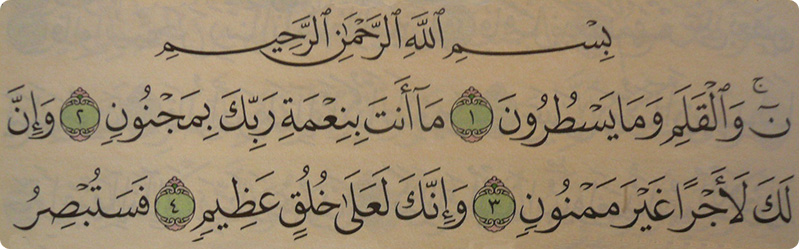 بِسْمِ ٱللَّهِ ٱلرَّحْمَٰنِ ٱلرَّحِيمِ
نٓ ۚ وَٱلْقَلَمِ وَمَا يَسْطُرُونَ ١ مَآ أَنتَ بِنِعْمَةِ رَبِّكَ بِمَجْنُونٍ ٢ وَإِنَّ
لَكَ لَأَجْرًا غَيْرَ مَمْنُونٍ ٣ وَإِنَّكَ لَعَلَىٰ خُلُقٍ عَظِيمٍ ٤ فَسَتُبْصِرُ